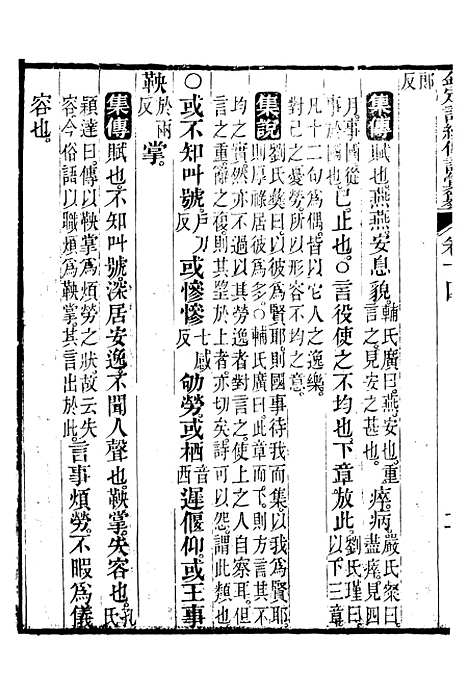 欽定詩經傳說彙纂 卷十四
郎反
集傳賦也燕燕安息貌輔氏廣曰燕安也重言之見安之甚也瘁病嚴氏粲曰盡瘁見四
月事國從事於國也已止也○言役使之不均也下章放此劉氏瑾曰以下三章
凡十二句爲偶皆以人之逸樂對己之憂勞所以形不均之意
集說劉氏奬曰以彼爲賢耶則國事待我而集以我爲賢耶則厚祿居彼爲多○輔氏廣曰此章而下則方言其不
均之實然亦不過以其勞逸者對言之使上之人自察耳但言之重辭之複則其望於上者亦切矣詩可以怨謂此類也
○或不知叫號戶刀反或慘慘七感反劬勞或栖音西遲偃仰或王事
鞅於兩反掌
集傳賦也不知叫號深居安逸不聞人聲也鞅掌失容也孔氏
穎達曰傳以鞅掌爲煩勞之狀故云失容今俗語以職煩爲鞅掌其言出於此言事煩勞不暇爲儀
容也